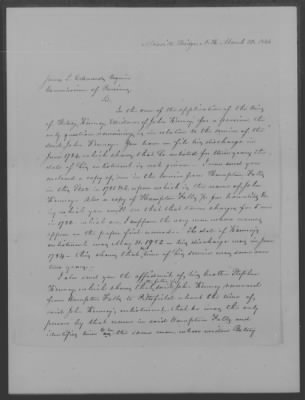 March 22, 1844
James L. Edwards Esquire
Commissioner of Pensions
Sir
In the case of the application of the heirs
of Betsy Kinney, Widow of John Kinney for a pension the
only question remaining, is in relation to the service of the
said John Kinney. You have on file his discharge in
June 1784 which shows that he enlisted for three years, the
date of his enlistment is not given. I now send you
enclosed a copy of men in the service from Hampton Falls
in the Year 1781 & 2 upon which is the name of John
Kinney. Also a copy of Hampton Falls for
by which you will see that that town charges for men
in 1782 which as I suppose the very men whose names
appear on the paper first named. The date of Kinney's
enlistment was May 31, 1782 & his discharge was June
1784. This shows that the time of his service was more than
two years.
I also send you the affidavit of his brother Stephen
Kinney which shows that said John Kinney removed
from Hampton Falls to Pittsfield about the time of
said John Kinney's enlistment, that he was the only
person by that name in said Hampton Falls and
identifying him to be the same man whose widow Betsy